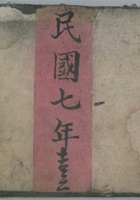 民國七年